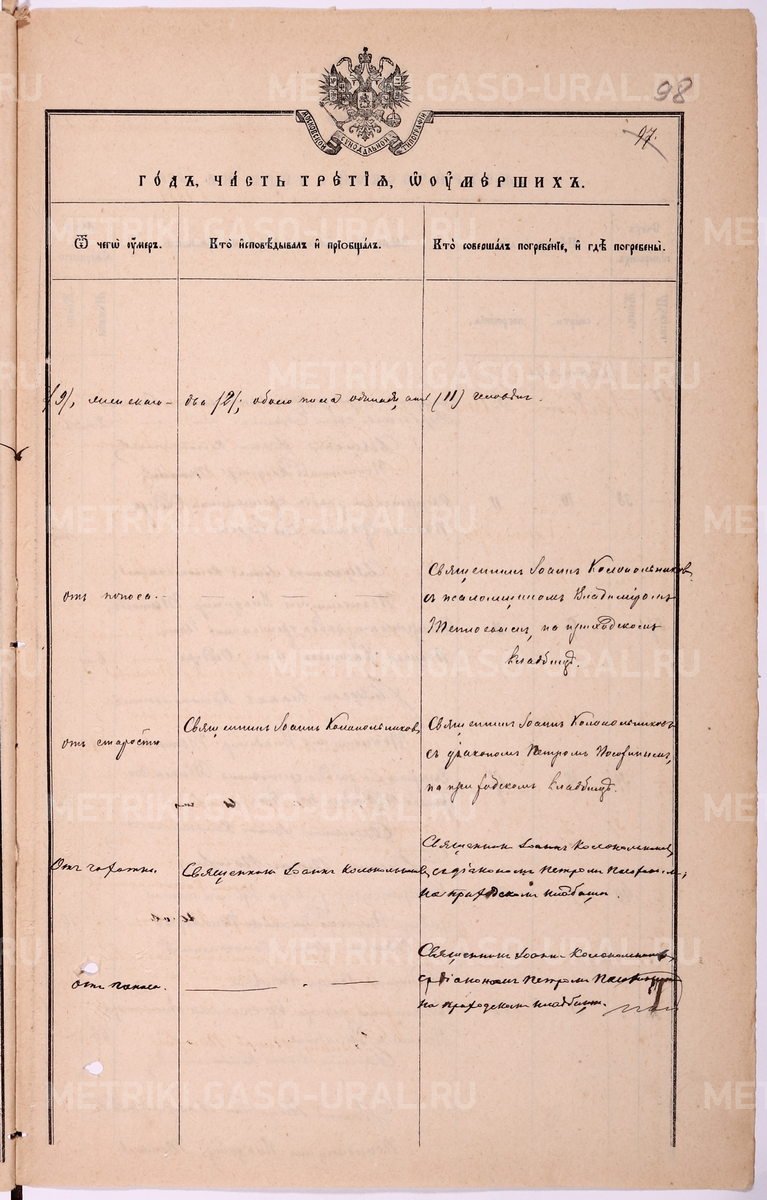 METRIKI.GASO-URAL.RU
98
97.
МОСКОВСКОЙ СѴНОДАЛЬНОЙ ТИПОГРАФІИ
ГО́ДЪ, ЧА́СТЬ ТРЕ́ТІѦ, Ѡ ОУМЕ́РШИХЪ.
Ѿ чегѡ̀ оу́меръ.
Кто̀ и҆сповѣ́дывалъ и҆ прїобща́лъ.
Кто̀ соверша́лъ погребе́нїе, и҆ гдѣ̀ погребены̀.
(9), женскаго — два (2); обоего пола одинадцать (11) человѣкъ.
отъ поноса.
Священникъ Іоаннъ Колокольниковъ
съ псаломщикомъ Владиміромъ
на приходскомъ
кладбищѣ.
отъ старости
Священникъ Іоаннъ Колокольниковъ
Священникъ Іоаннъ Колокольниковъ
съ діакономъ Петромъ
на приходскомъ кладбищѣ.
Отъ чахотки.
Священникъ Іоаннъ Колокольниковъ
Священникъ Іоаннъ Колокольниковъ
съ діакономъ Петромъ
на приходскомъ кладбищѣ.
отъ поноса.
Священникъ Іоаннъ Колокольниковъ
съ діакономъ Петромъ
на приходскомъ кладбищѣ.